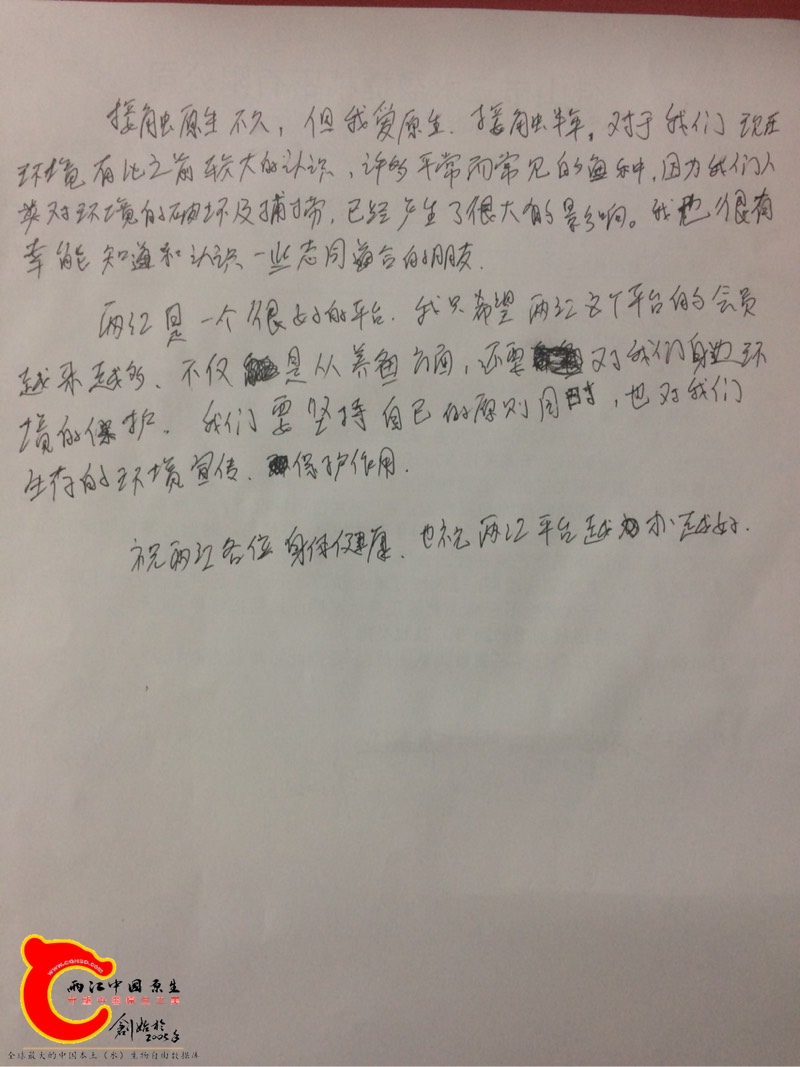 接触原生不久，但我爱原生．接触半年，对于我们现在
环境有比之前较大的认识，许多平常而常见的鱼种，因为我们人
类对环境的破坏及捕捞，已经产生了很大的影响。我也很有
幸能知道和认识一些志同道合的朋友．
两江是一个很好的平台．我只希望两江这个平台的会员
越来越多、不仅是从养鱼方面，还要对我们身边环
境的保护．我们要坚持自己的原则同时，也对我们
生存的环境宣传、保护作用．
祝两江各位身体健康、也祝两江平台越办越好．
www.cgnzo.com
两江中国原生
創始於
2005年
全球最大的中国本土《水》生物自由数据库